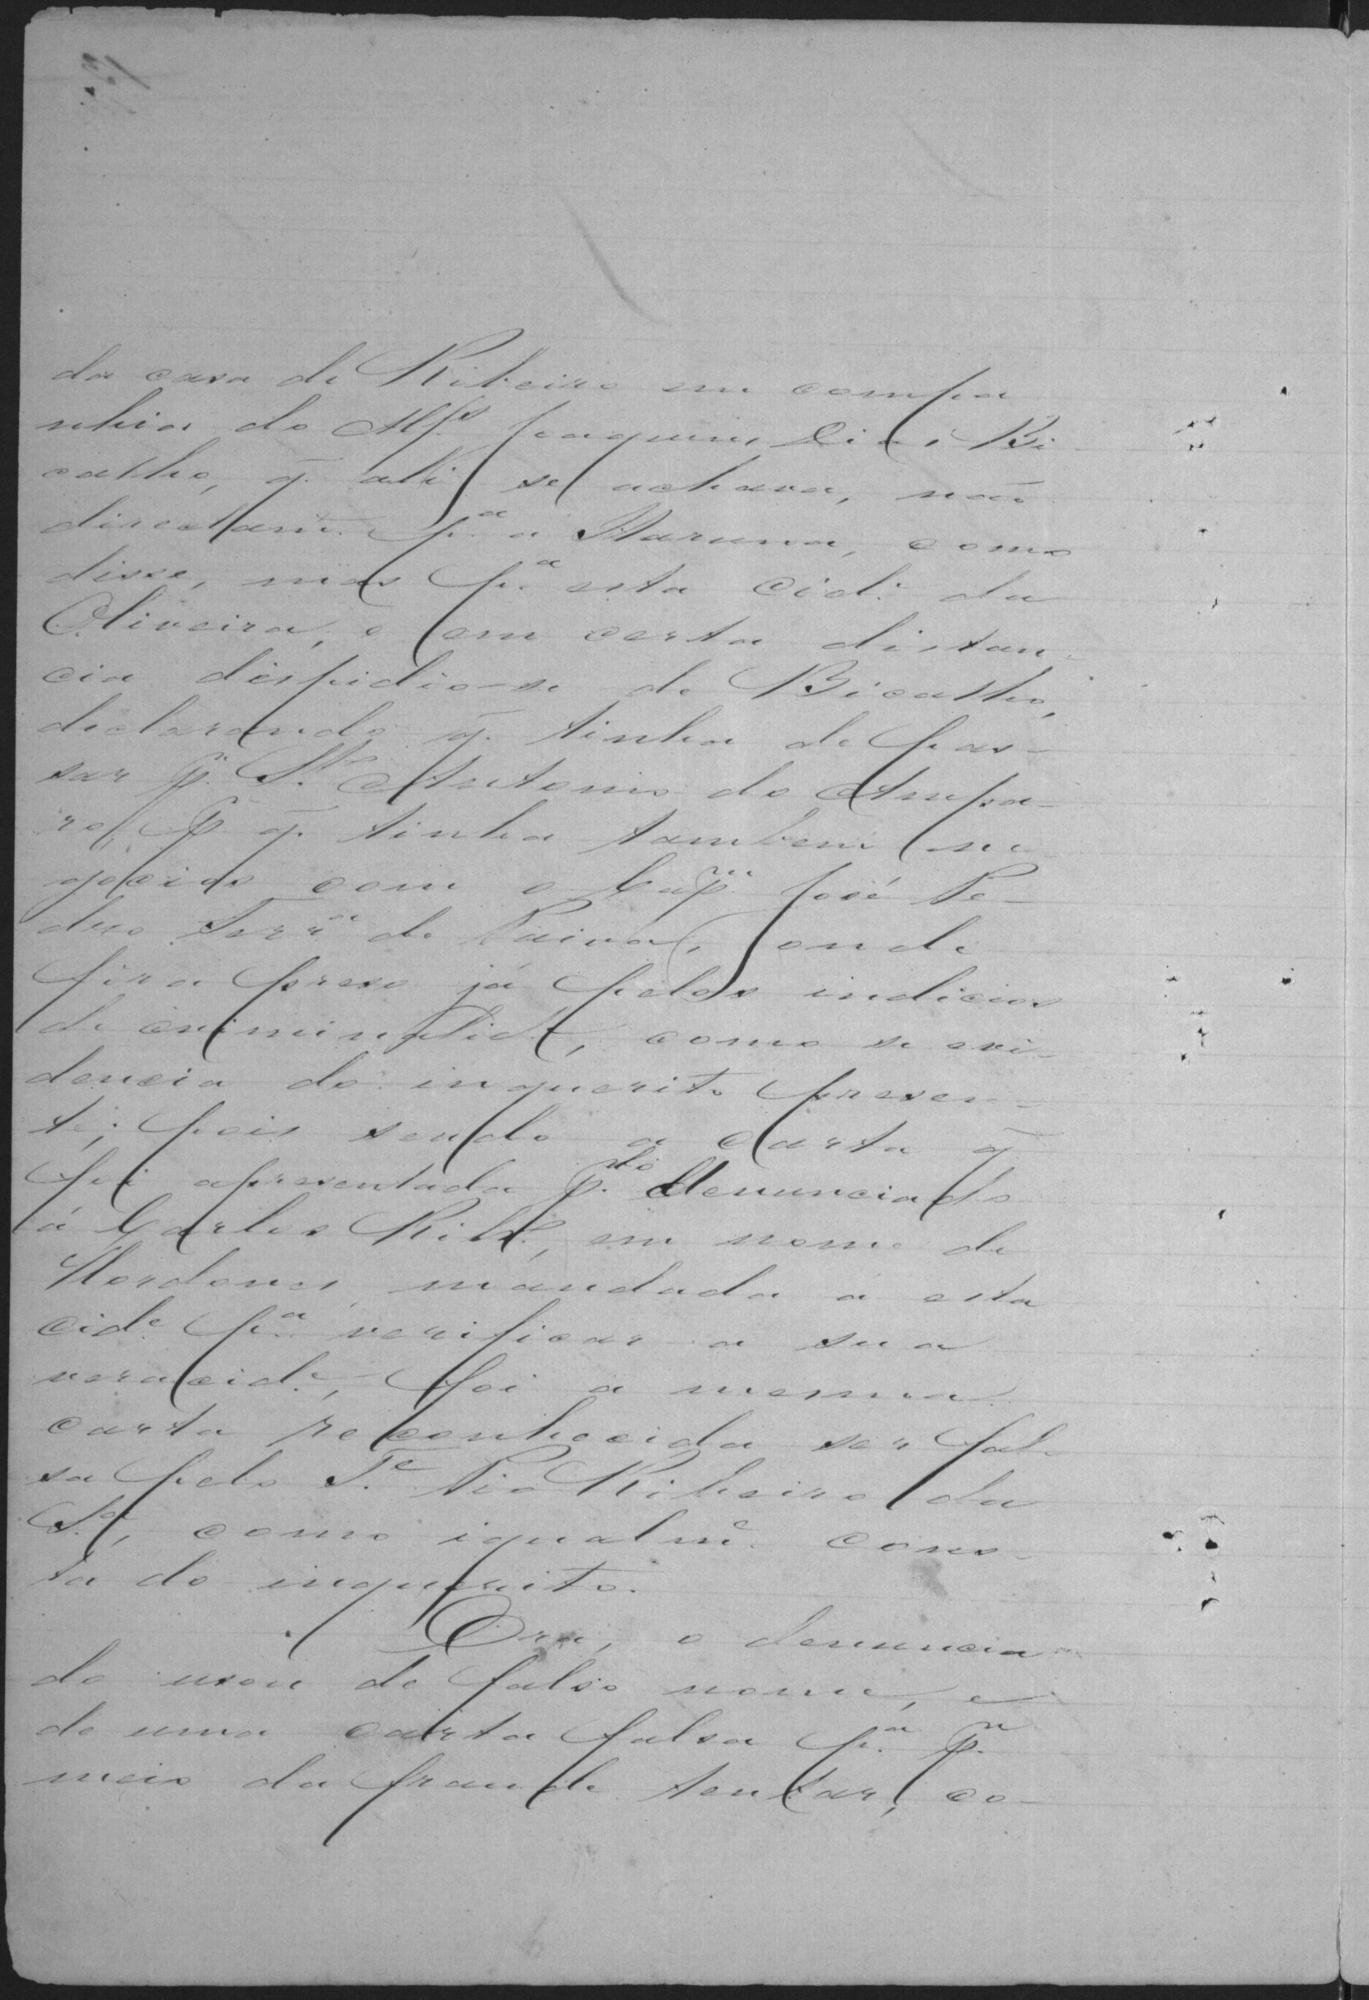 da casa de Ribeiro em compa
nhia do Alfs. Joaquim Dias Bi
calho, q. alli se achava, não
directamte. pa. a Itauna, como
disse, mas pa. esta cide. da
Oliveira, e em certa distan
cia despedio-se de Bicalho,
declarando q. tinha de pas-
sar pr. Sto. Antonio do Ampa-
ro, p. q. tinha tambem ne
gocios com o Capm. José Pe-
dro Ferra. de Paiva, onde
fora preso já pelos indicios
de criminalide., como se evi-
dencia do inquerito presen-
te; pois sendo a carta q.
foi apresentada plo. denunciado
á Carlos Ribo., em nome de
mandada a esta
cide. pa. verificar a sua
veracide., foi a mesma
carta reconhecida ser fal-
sa pelo Te. Pio Ribeiro da
Sa., como igualme. cons-
ta do inquerito.
Ora, o denuncia
do usou de falso nome, e
de uma carta falsa pa. pr.
meio da fraude tentar, co-